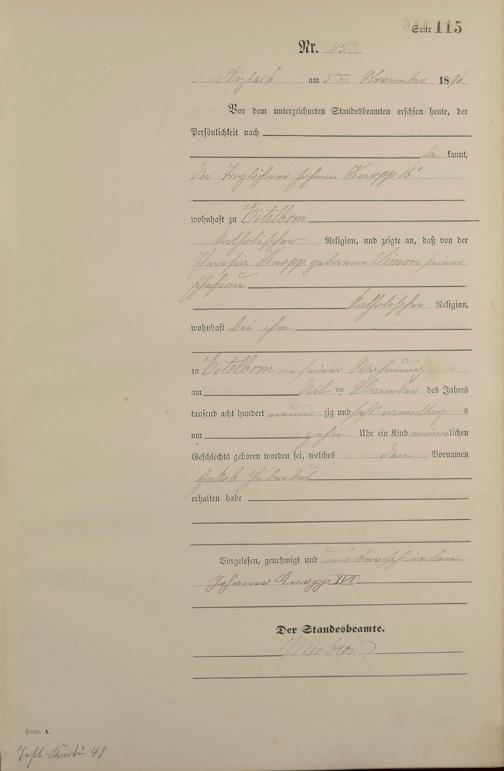 Seite 115
Nr. 115
Arzbach am 3ten November 1896
Vor dem unterzeichneten Standesbeamten erschien heute, der
Persönlichkeit nach
be kannt,
der Taglöhner Johann Knopp 16r
wohnhaft zu Eitelborn
katholischer Religion, und zeigte an, daß von der
Knopp geborene Simon, seiner
Ehefrau
katholischer Religion,
wohnhaft bei ihm
zu Eitelborn in seiner Wohnung
am ten November des Jahres
tausend acht hundert neun zig und sechs vormittags
um zehn Uhr ein Kind männlichen
Geschlechts geboren worden sei, welches den Vornamen
Jakob
erhalten habe
Vorgelesen, genehmigt und unterschrieben
Johann Knopp XVI
Der Standesbeamte.
Form. A.
49